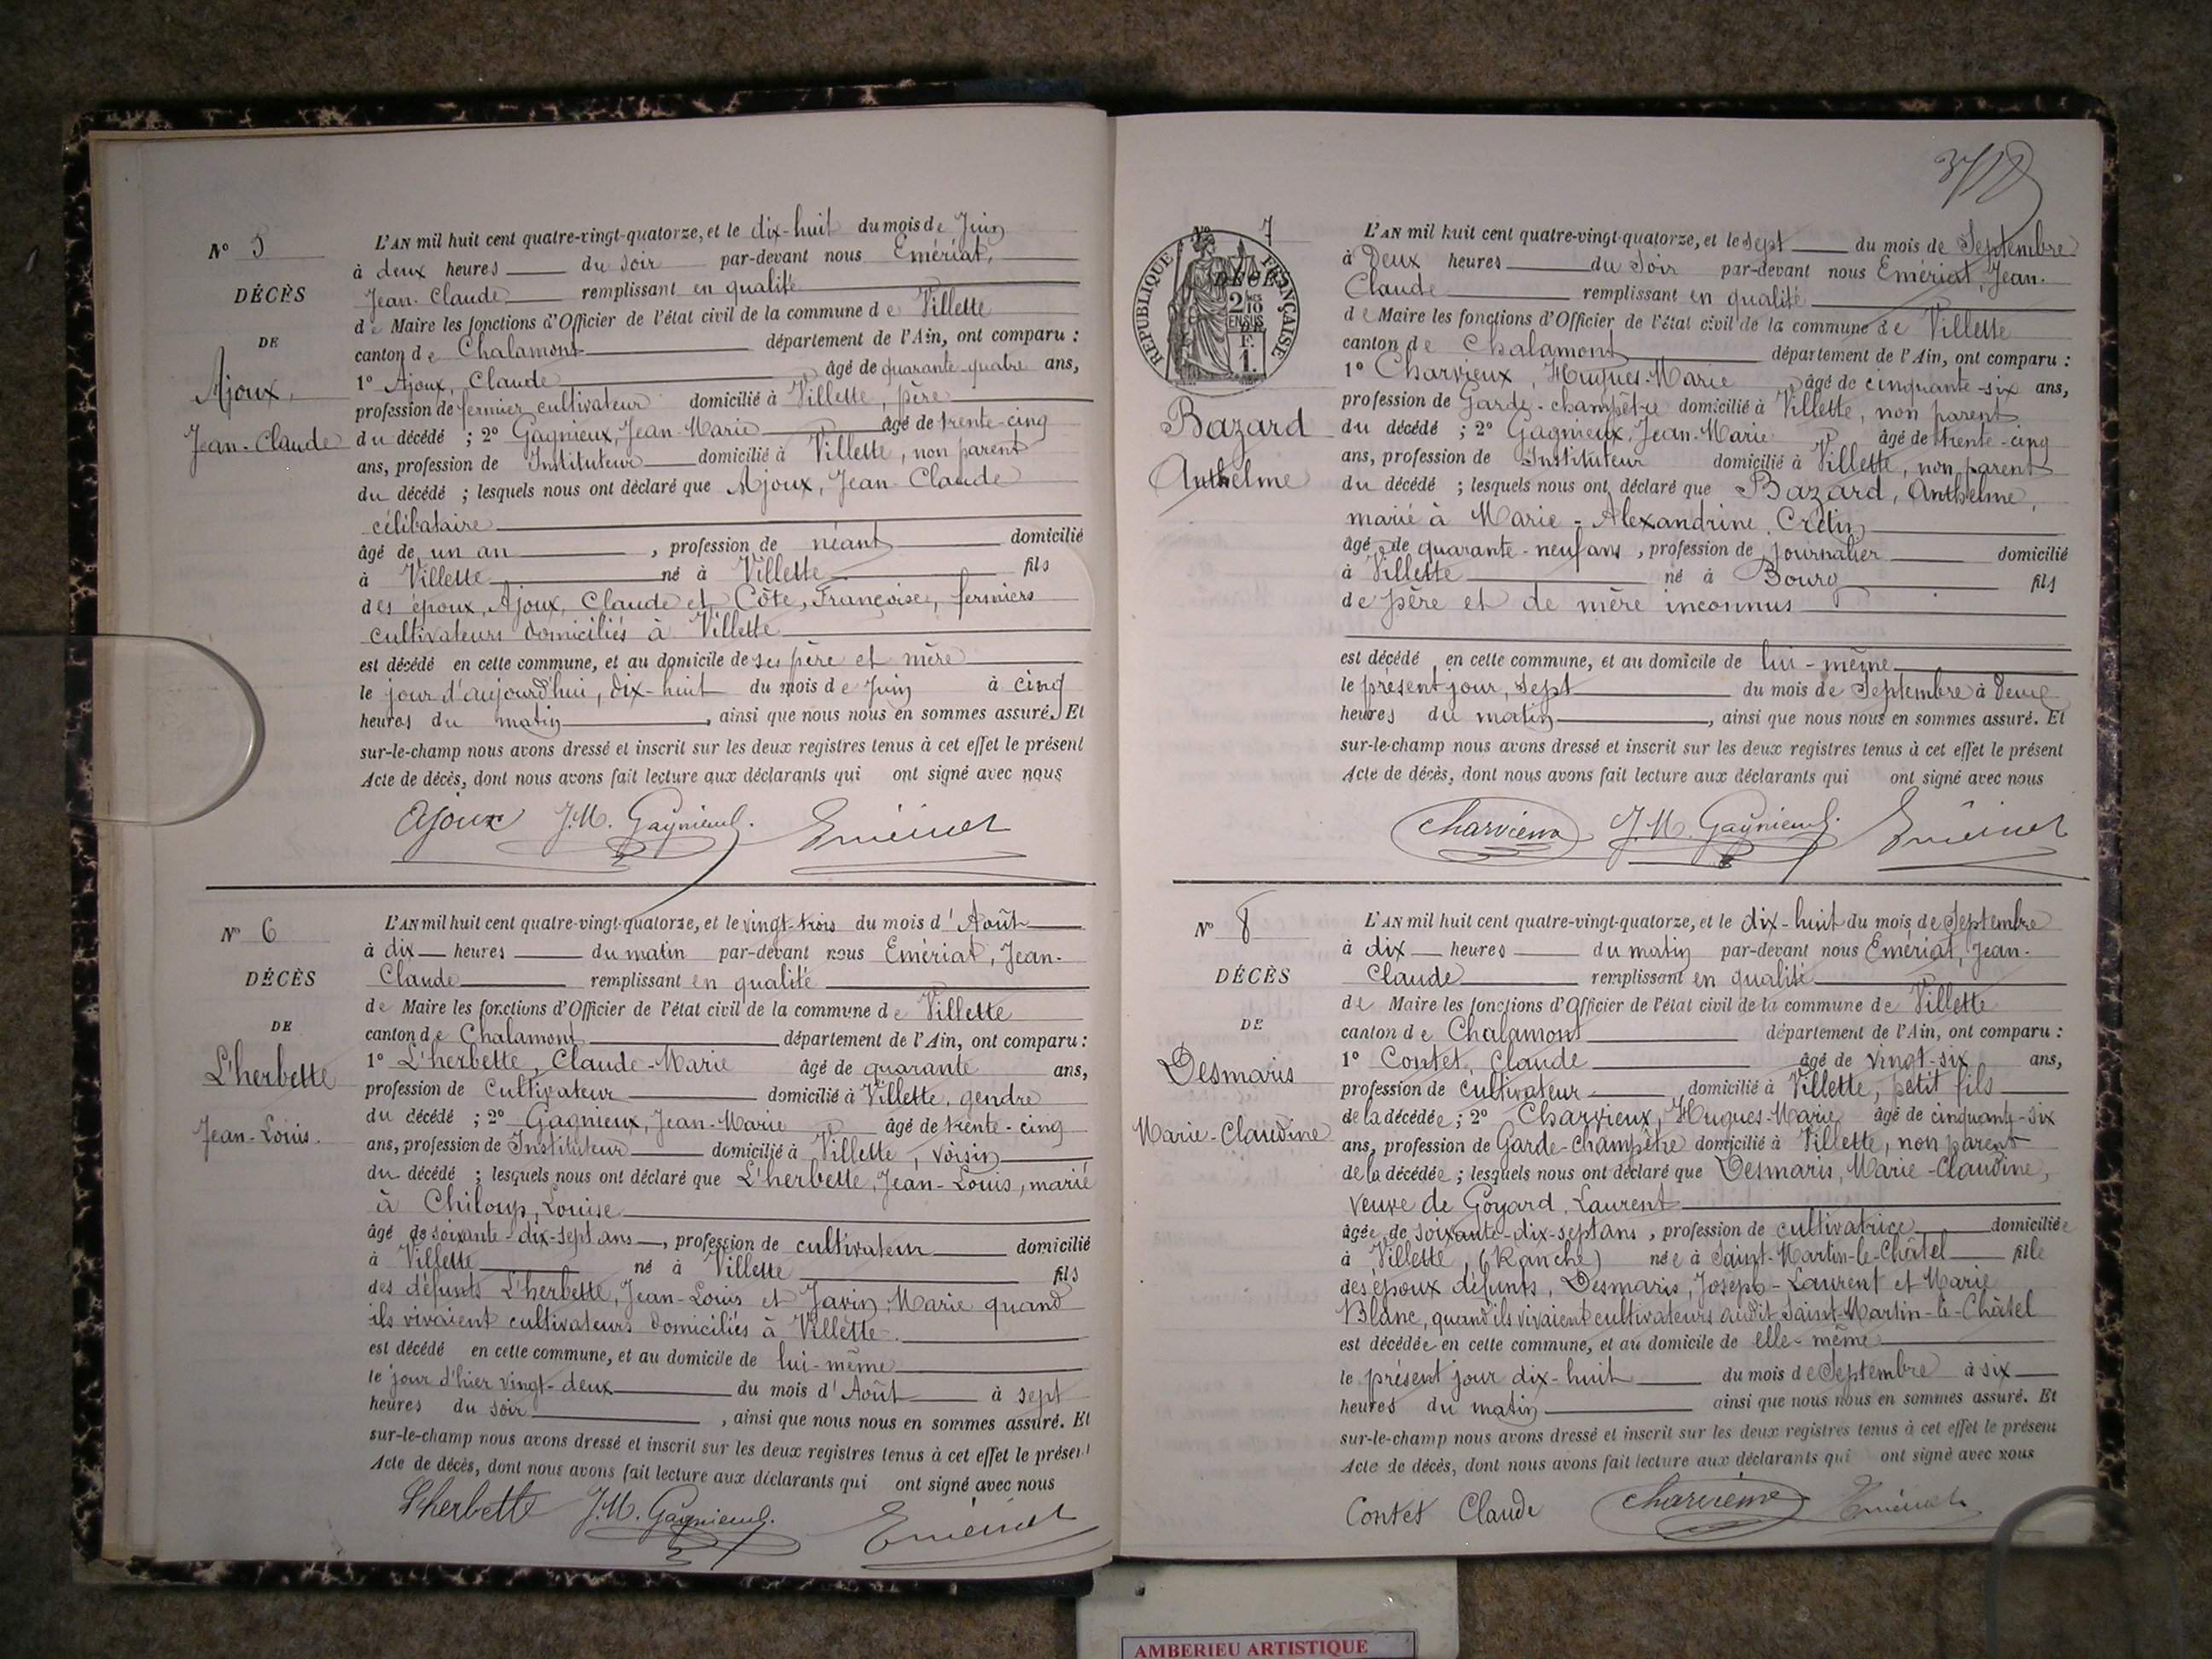 N° 5
DÉCÈS
DE
Ajoux,
Jean-Claude
L'AN mil huit cent quatre-vingt-quatorze, et le dix-huit du mois de Juin
à deux heures du soir par-devant nous Emériat,
Jean-Claude remplissant en qualité
de Maire les fonctions d'Officier de l'état civil de la commune de Villette
canton de Chalamont département de l'Ain, ont comparu :
1° Ajoux, Claude, âgé de quarante-quatre ans,
profession de fermier cultivateur domicilié à Villette, père
du décédé ; 2° Gagnieux, Jean-Marie âgé de trente-cinq
ans, profession de Instituteur domicilié à Villette, non parent
du décédé ; lesquels nous ont déclaré que Ajoux, Jean-Claude
célibataire
âgé de un an, profession de néant domicilié
à Villette né à Villette fils
des époux, Ajoux, Claude et Côte, Françoise, fermiers
cultivateurs domiciliés à Villette
est décédé en cette commune, et au domicile de ses père et mère
le jour d'aujourd'hui, dix-huit du mois de Juin à cinq
heures du matin, ainsi que nous nous en sommes assuré. Et
sur-le-champ nous avons dressé et inscrit sur les deux registres tenus à cet effet le présent
Acte de décès, dont nous avons fait lecture aux déclarants qui ont signé avec nous
Ajoux J.M. Gagnieux. Emériat
N° 6
DÉCÈS
DE
L'herbette
Jean-Louis.
L'AN mil huit cent quatre-vingt-quatorze, et le vingt-trois du mois d'Août
à dix heures du matin par-devant nous Emériat, Jean-
Claude remplissant en qualité
de Maire les fonctions d'Officier de l'état civil de la commune de Villette
canton de Chalamont département de l'Ain, ont comparu :
1° L'herbette, Claude-Marie âgé de quarante ans,
profession de Cultivateur domicilié à Villette, gendre
du décédé ; 2° Gagnieux, Jean-Marie âgé de trente-cinq
ans, profession de Instituteur domicilié à Villette, voisin
du décédé ; lesquels nous ont déclaré que L'herbette, Jean-Louis, marié
à Chiloup, Louise
âgé de soixante-dix-sept ans, profession de cultivateur domicilié
à Villette né à Villette fils
des défunts L'herbette, Jean-Louis et Javin, Marie quand
ils vivaient cultivateurs domiciliés à Villette.
est décédé en cette commune, et au domicile de lui-même
le jour d'hier vingt-deux du mois d'Août à sept
heures du soir, ainsi que nous nous en sommes assuré. Et
sur-le-champ nous avons dressé et inscrit sur les deux registres tenus à cet effet le présent
Acte de décès, dont nous avons fait lecture aux déclarants qui ont signé avec nous
Lherbette J.M. Gagnieux. Emériat
N° 7
RÉPUBLIQUE FRANÇAISE
2/10
EN SUS
1 F.
DE
Bazard
Anthelme
L'AN mil huit cent quatre-vingt-quatorze, et le sept du mois de Septembre
à Deux heures du Soir par-devant nous Emériat, Jean-
Claude remplissant en qualité
de Maire les fonctions d'Officier de l'état civil de la commune de Villette
canton de Chalamont département de l'Ain, ont comparu :
1° Charvieux, Hugues-Marie, âgé de cinquante-six ans,
profession de Garde-champêtre domicilié à Villette, non parent
du décédé ; 2° Gagnieux, Jean-Marie âgé de trente-cinq
ans, profession de Instituteur domicilié à Villette, non parent
du décédé ; lesquels nous ont déclaré que Bazard, Anthelme,
marié à Marie-Alexandrine Crétin
âgé de quarante-neuf ans, profession de journalier domicilié
à Villette né à Bourg fils
de père et de mère inconnus
est décédé en cette commune, et au domicile de lui-même
le présent jour, sept du mois de Septembre à deux
heures du matin, ainsi que nous nous en sommes assuré. Et
sur-le-champ nous avons dressé et inscrit sur les deux registres tenus à cet effet le présent
Acte de décès, dont nous avons fait lecture aux déclarants qui ont signé avec nous
Charvieux J.M. Gagnieux. Emériat
N° 8
DÉCÈS
DE
Desmaris
Marie-Claudine
L'AN mil huit cent quatre-vingt-quatorze, et le dix-huit du mois de Septembre
à dix heures du matin par-devant nous Emériat, Jean-
Claude remplissant en qualité
de Maire les fonctions d'Officier de l'état civil de la commune de Villette
canton de Chalamont département de l'Ain, ont comparu :
1° Contet, Claude âgé de vingt-six ans,
profession de cultivateur domicilié à Villette, petit fils
de la décédée ; 2° Charvieux, Hugues-Marie âgé de cinquante-six
ans, profession de Garde-champêtre domicilié à Villette, non parent
de la décédée ; lesquels nous ont déclaré que Desmaris, Marie-Claudine,
veuve de Goyard, Laurent
âgée de soixante-dix-sept ans, profession de cultivatrice domiciliée
à Villette, (Ranche) née à Saint-Martin-le-Châtel fille
des époux défunts, Desmaris, Joseph-Laurent et Marie
Blanc, quand ils vivaient cultivateurs audit Saint-Martin-le-Châtel
est décédée en cette commune, et au domicile de elle-même
le présent jour dix-huit du mois de Septembre à six
heures du matin ainsi que nous nous en sommes assuré. Et
sur-le-champ nous avons dressé et inscrit sur les deux registres tenus à cet effet le présent
Acte de décès, dont nous avons fait lecture aux déclarants qui ont signé avec nous
Contet Claude Charvieux Emériat
AMBERIEU ARTISTIQUE